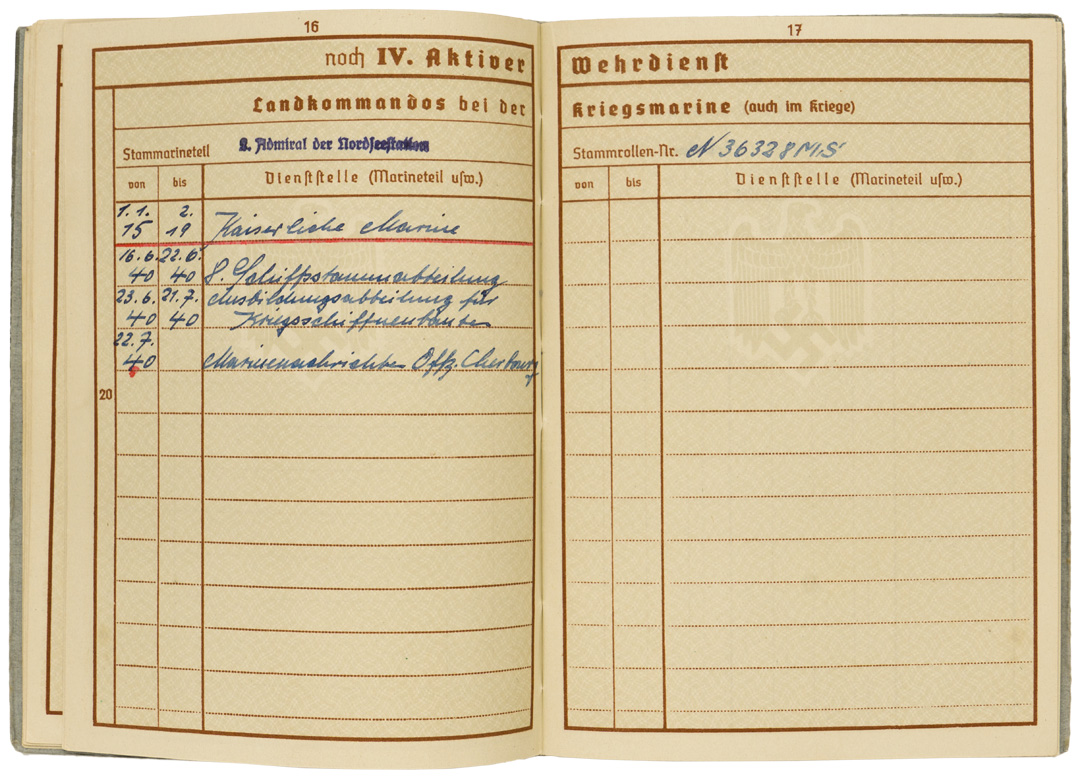 16
noch IV. Aktiver
Landkommandos bei der
Stammarineteil 2. Admiral der Nordseestation
von bis Dienststelle (Marineteil usw.)
1.1. 2.
15 19 Kaiserliche Marine
16.6. 22.6.
40 40 8. Schiffsstammabteilung
23.6. 21.7. Ausbildungsabteilung für
40 40 Kriegsschiffneubauten
22.7.
40 Marinenachrichten Offz. Cherbourg
20
17
Wehrdienst
Kriegsmarine (auch im Kriege)
Stammrollen-Nr. N 36328 M.S
von bis Dienststelle (Marineteil usw.)